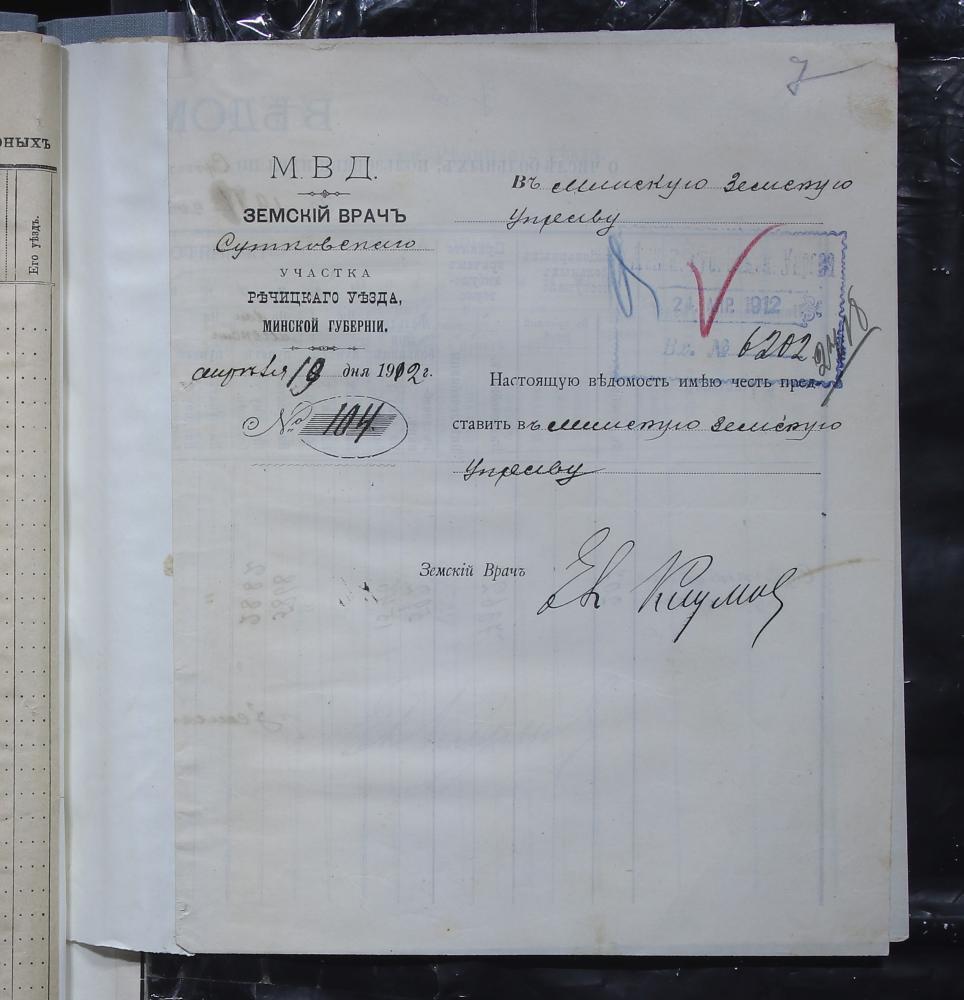 7
рныхъ
Его уѣздъ.
М. В. Д.
ЗЕМСКІЙ ВРАЧЪ
Сутковскаго
УЧАСТКА
РѢЧИЦКАГО УѢЗДА,
МИНСКОЙ ГУБЕРНІИ.
апрѣля 19 дня 1912 г.
№ 104.
Въ Минскую Земскую
Управу
24 АПР. 1912
Вх. № 6202
Настоящую вѣдомость имѣю честь пред-
ставить въ Минскую Земскую
Управу
Земскій Врачъ